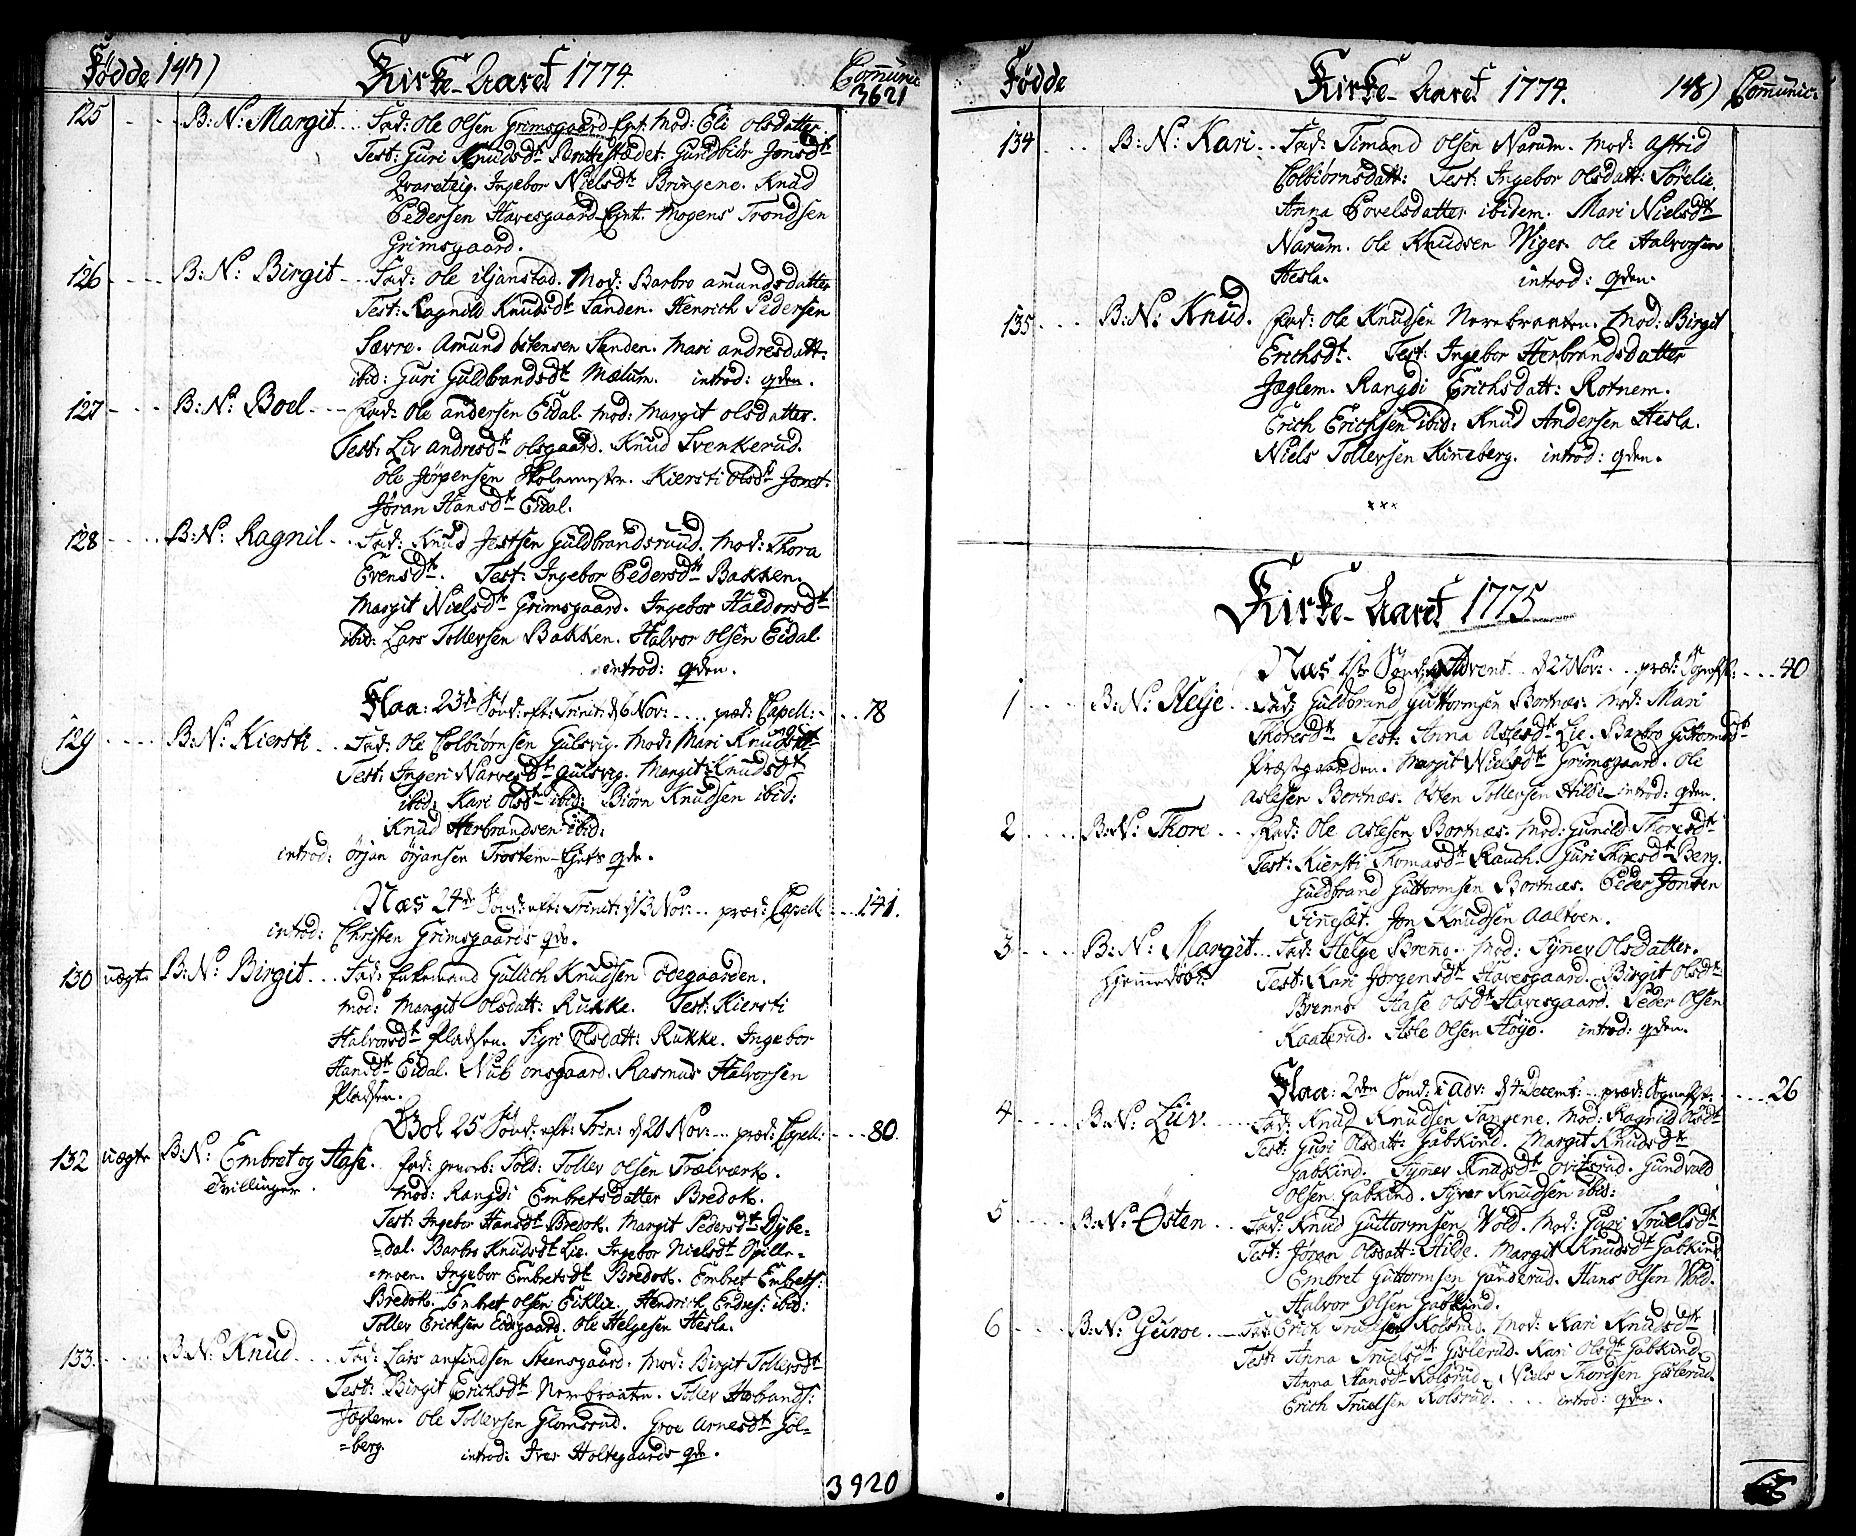 Fødde 147) Kirke-Aaret 1774. Comunic:
3621
125 B: N: Margit Fad: Ole Olsen Grimsgaard Ejet. Mod: Eli Olsdatter.
Test: Guri Knudsdt Brattestædet. Gundbiør Jonsdt
Ingebor Nielsdt Bringene. Knud
Pedersen Havesgaard Ejet. Mogens Trondsen
Grimsgaard.
126 B: N: Birgit Fad: Ole iljanstad. Mod: Barbro amundsdatter
Test: Ragnild Knudsdt Sanden. Henrich Pedersen
Sævre. Amund østensen Sanden. Mari andresdatt:
ibid: Guri Guldbrandsdt Mælum. introd: qden.
127 B: N: Boel Fad: Ole andersen Eidal. Mod: Margit olsdatter.
Test: Liv andresdt olsgaard. Knud Svenkerud.
Ole Jørgensen Skolemester. Kiersti Olsdt
Jøran Hansdt Eidal.
128 B: N: Ragnil Fad: Knud Jostsen Guldbrandsruud. Mod: Thora
Evensdt. Test: Ingebor Pedersdt Bakken.
Margit Nielsdt Grimsgaard. Ingebor Haldorsdt
ibid: Lars Tollersen Bakken. Halvor Olsen Eidal.
introd: qden.
Flaa: 23de Sønd: eft: Trinit: d 6 Nov: præd: Capell: 78
129 B: N: Kiersti Fad: Ole Colbiørnsen Gulsvig. Mod: Mari Knudsdt
Test: Ingeri Narvesdt Gulsvig. Margit Knudsdt
ibid: Kari Olsdt ibid: Biørn Knudsen ibid:
Knud Herbrandsen ibid:
introd: Ørjan Ørjansen Trostem Ejets qde.
Næs 24de Sønd: eft: Trinit: d 13 Nov: præd: Capell: 141.
introd: Christen Grimsgaards qde.
130 uægte B: N: Birgit Fad: Enkemand Gullich Knudsen Ødegaarden.
Mod: Margit Olsdatt: Rukke. Test: Kiersti
Halvorsdt Pladsen. Sigri Olsdatt: Rukke. Ingebor
Hansdt Eidal. Nub onsgaard. Rasmus Halvorsen
Pladsen.
25 Sønd: eft: Trin: d 20 Nov: præd: Capell: 80.
132 uægte B: N: Embret og Aase. Fad: Sold: Tollev Olsen Trælværk.
Tvillinger. Mod: Rangdi Embretsdatter Bredok.
Test: Ingebor Hansdt Bredok. Margit Pedersdt Dybe-
=dal. Barbro Knudsdt Lie. Ingebor Nielsdt Spille-
=moen. Ingebor Embretsdt Bredok. Embret Embrets:
Bredok. Embret Olsen Eiklie. Hendrich Endres: ibid:
Tollev Erichsen Eidsgaard. Ole Helgesen Hesla.
133. B: N: Knud Fad: Lars anfindsen Steensgaard. Mod: Birgit Tollefsdt
Test: Birgit Erichsdt Norebraate. Tollev Herbrands:
Jøglem. Ole Tollefsen Glomsrud. Groe Arnesdt Gol-
=berg. introd: Iver Holtegaards qde.
3920
Fødde Kirke-Aaret 1774. 148) Comunic:
134 B: N: Kari Fad: Simand Olsen Narum. Mod: Astrid
Colbiørnsdatt: Test: Ingebor Olsdatt: Sørelie.
Anna Povelsdatter ibidem. Mari Nielsdt
Narum. Ole Knudsen Wiger. Ole Halvorsen
Hesla. introd: qden.
135 B: N: Knud. Fad: Ole Knudsen Norebraaten. Mod: Birgit
Erichsdt. Test: Ingebor Herbrandsdatter
Jøglem. Rangdi Erichsdatt: Rotnem.
Erich Erichsen ibid: Knud Andersen Hesla.
Niels Tollefsen Kinneberg. introd: qden.
×××
Kirke-Aaret 1775
Næs 1ste Sønd: Advent d 27 Nov: præd: 40
1 B: N: Helje Fad: Guldbrand Guttormsen Bortnæs. Mod: Mari
Thoresdt Test: Anna Aslesdt Lie. Barbro Guttormsdt
Præstgaarden. Margit Nielsdt Grimsgaard. Ole
Aslesen Bortnæs. Østen Tollefsen Hilde introd: qden.
2 B: N: Thore Fad: Ole Aslesen Bortnæs. Mod: Gunild Thoresdt
Test: Kiersti Thomasdt Rauch. Guri Thoresdt Berg.
Guldbrand Guttormsen Bortnæs. Peder Jonsen
Finnesæt. Jon Knudsen Aaltoen.
3 B: N: Margit Fad: Helge Brenno. Mod: Synev Olsdatter.
Hjemmedøbt. Test: Kari Jørgensdt Havesgaard. Birgit Olsdt
Brenno. Aase Olsdt Havesgaard. Peder Olsen
Kaaterud. Asle Olsen Høyo. introd: qden.
Flaa: 2den Sønd: i Adv: d 4 Decemb: præd: 26
4 B: N: Liv. Fad: Knud Knudsen Tangene. Mod: Ragnild Olsdt
Test: Guri Olsdatt: Gabkind. Margit Knudsdt
Gabkind. Synev Knudsdt Gundvald
Olsen Gabkind. Syver Knudsen ibid:
5 B: N: Østen Fad: Knud Guttormsen Vold. Mod: Guri Truelsdt
Test: Jøran Olsdatt: Hilde. Margit Knudsdt Gabkind
Embret Guttormsen Gunderud. Hans Olsen Vold.
Halvor Olsen Gabkind.
6 B: N: Guroe Fad: Erich Truelsen Kolsrud. Mod: Kari Knudsdt
Test: Anna Truelsdt Gislerud. Kari Olsdt Gabkind.
Anna Hansdt Kolsrud. Niels Thoresen Gislerud
Erich Truelsen Kolsrud. introd: qden.
66